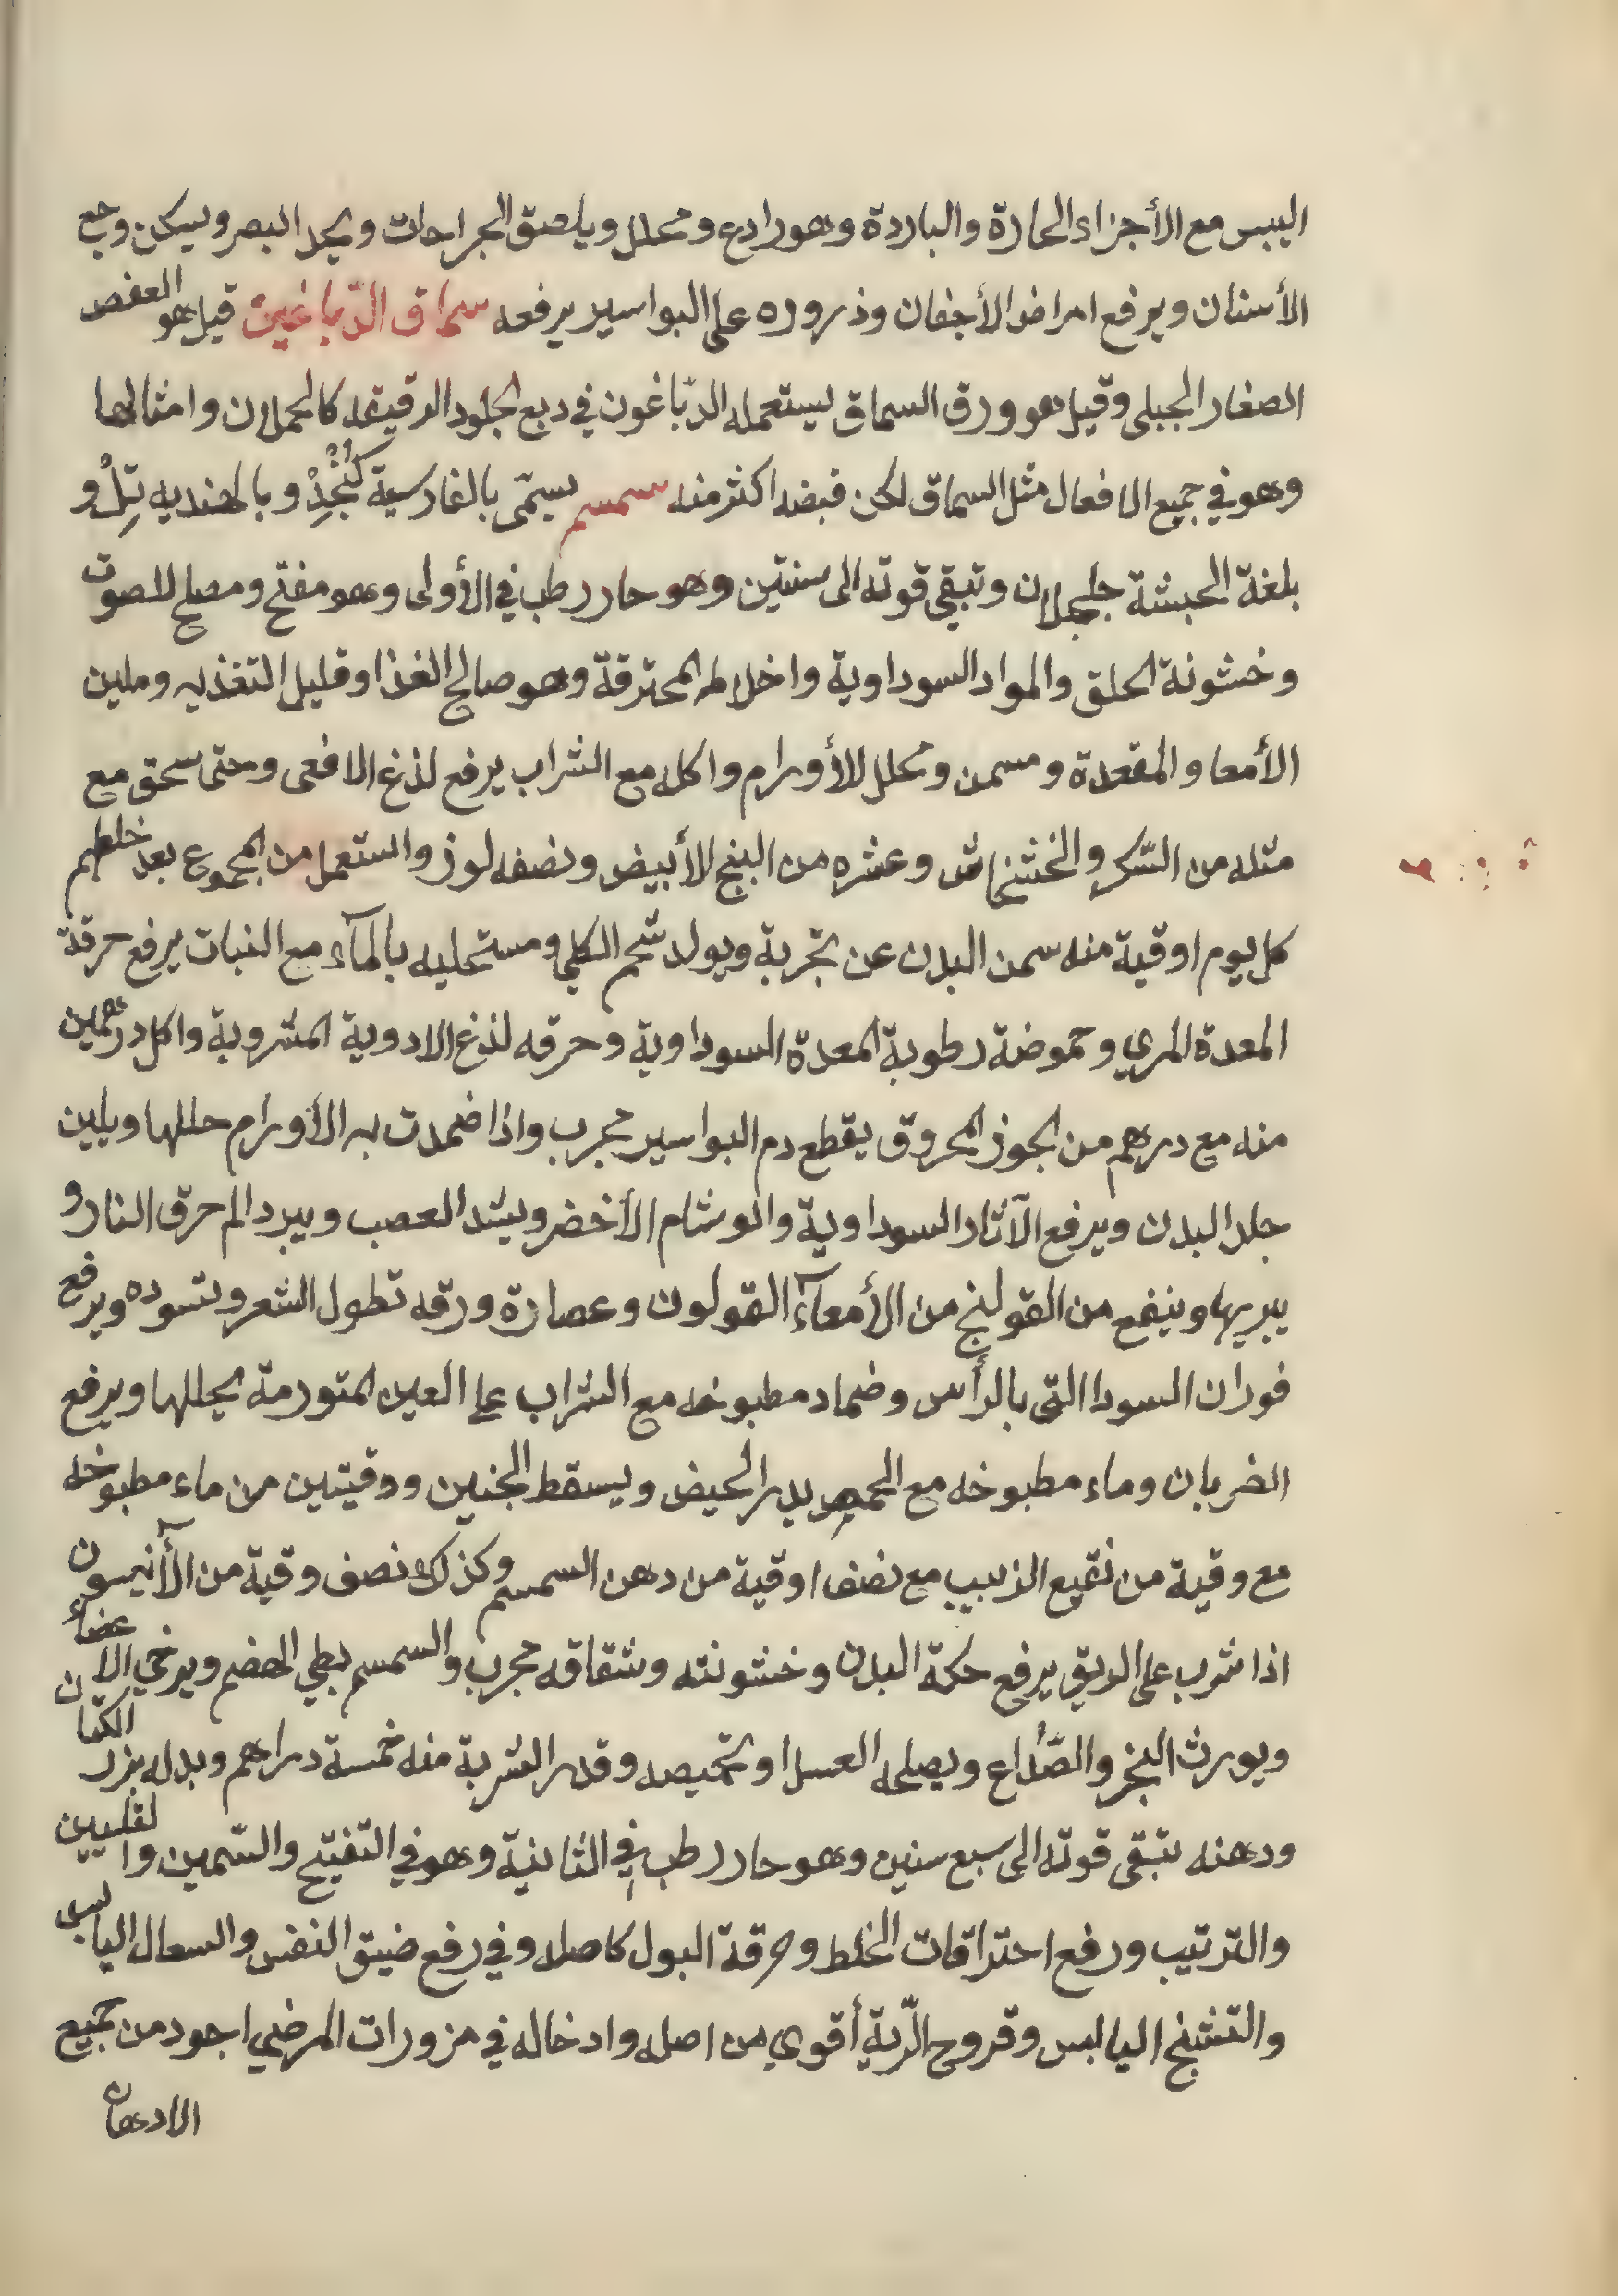 اليبس مع الأجزاء الحارة والباردة وهو رادع ومحلل ويلصق الجراحات ويحد البصر ويسكن وجع
الأسنان ويرفع امراض الأجفان وذروره على البواسير يرفعه سماق الدّباغين قيل هو العفص
الصغار الجبلى وقيل هو ورق السماق يستعمله الدّباغون في دبع الجلود الرقيقه كالحملان وامثالها
وهو في جميع الافعال مثل السماق لكن قبضه اكثر منه سمسم يسمّى بالفارسية كُنْجُدْ وبالهنديه تِلْ و
بلغة الحبشة جلجلان وتبقى قوته الى سنتين وهو حار رطب في الأولى وهو مفتح ومصلح للصوت
وخشونة الحلق والمواد السوداوية واخلاطه المحترقة وهو صالح الغذا وقليل التغذيه وملين
الأمعا والمقعدة ومسمن ومحلل للأورام واكله مع الشراب يرفع لذغ الافعى ومتى سحق مع
مثله من السّكر والخشخاش وعشره من البنج الأبيض ونصفه لوز واستعمل من المجموع بعد خلطهم
كل يوم اوقية منه سمن البدن عن تجربة ويولد شحم الكلى ومستحلبه بالمآء مع النبات يرفع حرقة
المعدة المري وحموضة رطوبة المعدة السوداوية وحرقه لذغ الادوية المشروبة واكل درهمين
منه مع درهم من الجوز المحروق يقطع دم البواسير مجرب واذا ضمدت به الأورام حللها ويلين
جلد البدن ويرفع الآثار السوداوية والوشام الأخضر ويشد العصب ويبرد الم حرق النار و
يبريها وينفع من القولنج من الأمعآء القولون وعصارة ورقه تطول الشعر وتسوده ويرفع
فوران السودا التى بالرأس وضماد مطبوخه مع الشراب على العين المتورمة يحللها ويرفع
الضربان وماء مطبوخه مع الحمص يدر الحيض ويسقط الجنين ووقيتين من ماء مطبوخه
مع وقية من نقيع الزبيب مع نصف اوقية من دهن السمسم وكذلك نصف وقية من الآنيسون
اذا شرب على الريق يرفع حكة البدن وخشونته وشقاقه مجرب والسمسم بطي الهضم ويرخي الاعضاء
ويورث البخر والصّداع ويصلحه العسل او تحميصه وقدر الشربة منه خمسة دراهم وبدله بزر الكتان
ودهنه تبقى قوته الى سبع سنين وهو حار رطب في الثانية وهو في التفتيح والتسمين والتليين
والترتيب ورفع احتراقات الخلط وحرقة البول كاصله وفي رفع ضيق النفس والسعال اليابس
والتشنج اليابس وقروح الرّية أقوي من اصله وادخاله في مزورات المرضي اجود من جميع
الادهان